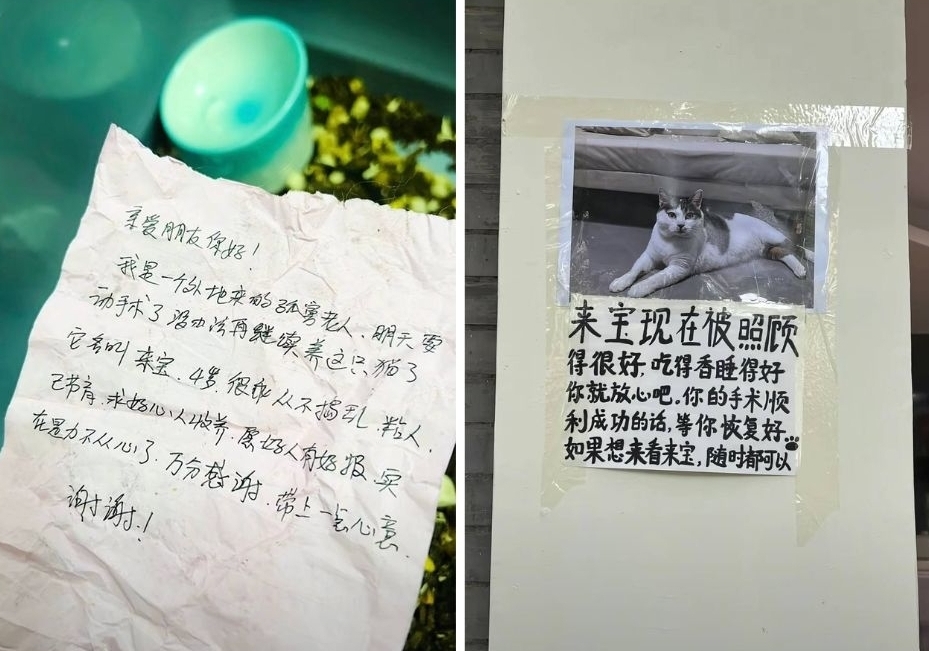 亲爱朋友你好！
我是一个外地来的孤寡老人．明天要
动手术了没办法再继续养这只猫了
它名叫来宝．4岁．很乖从不捣乱．粘人．
已节育．求好心人收养．愿好人有好报．实
在是力不从心了．万分感谢．带上一点心意．
谢谢．！
来宝现在被照顾
得很好．吃得香睡得好
你就放心吧．你的手术顺
利成功的话，等你恢复好．
如果想来看来宝，随时都可以